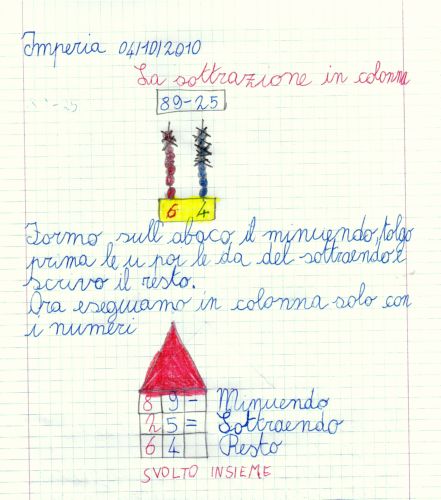 Imperia 04/10/2010
La sottrazione in colonna
89-25
6 4
Formo sull'abaco il minuendo, tolgo
prima le u poi le da del sottraendo e
scrivo il resto.
Ora eseguiamo in colonna solo con
i numeri
8 9 - Minuendo
2 5 = Sottraendo
6 4 Resto
SVOLTO INSIEME